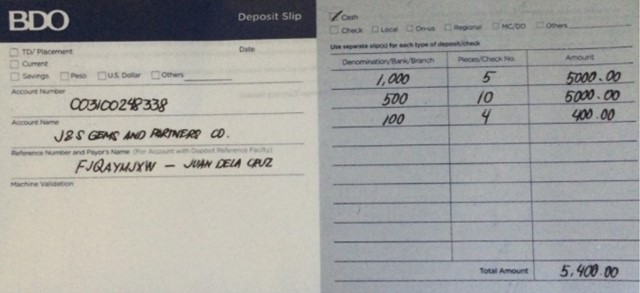 BDO
Deposit Slip
TD/ Placement
Date
Current
Savings Peso U.S. Dollar Others
Account Number
003100248338
Account Name
J&S GEMS AND PARTNERS CO.
Reference Number and Payor's Name (For Account with Deposit Reference Facility)
FJQAYMJXW – JUAN DELA CRUZ
Machine Validation
Cash
Check Local On-us Regional MC/DD Others
Use separate slip(s) for each type of deposit/check
Denomination/Bank/Branch Pieces/Check No. Amount
1,000 5 5000.00
500 10 5000.00
100 4 400.00
Total Amount 5,400.00